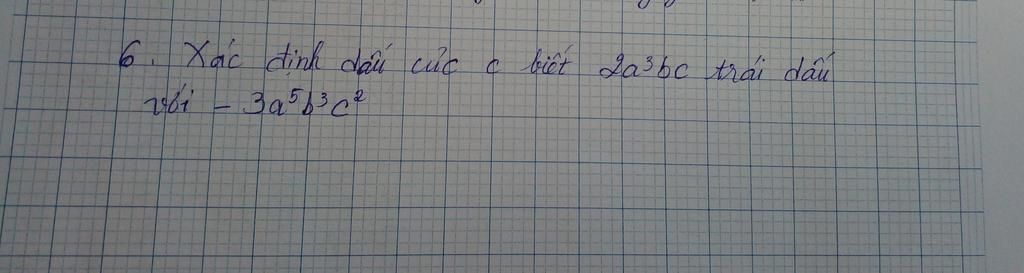 6. Xác định dấu cửc c biết 2a³bc trái dấu
với - 3a⁵b³c²